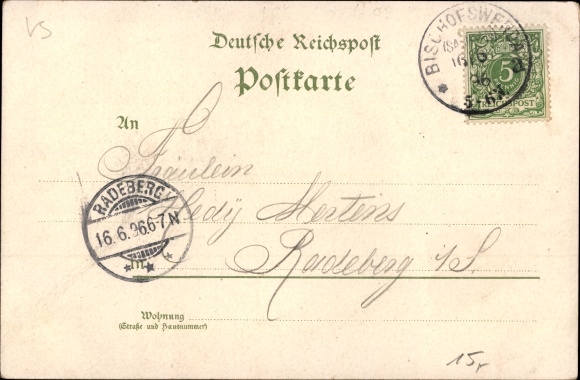 VS
Deutsche Reichspost
Postkarte
BISCHOFSWERDA
16 6
96
5-6N
5
REICHSPOST
An
Fräulein
Hedy Mertens
Radeberg i/S.
RADEBERG
16.6.96.6-7N
Wohnung
(Straße und Hausnummer)
15,-